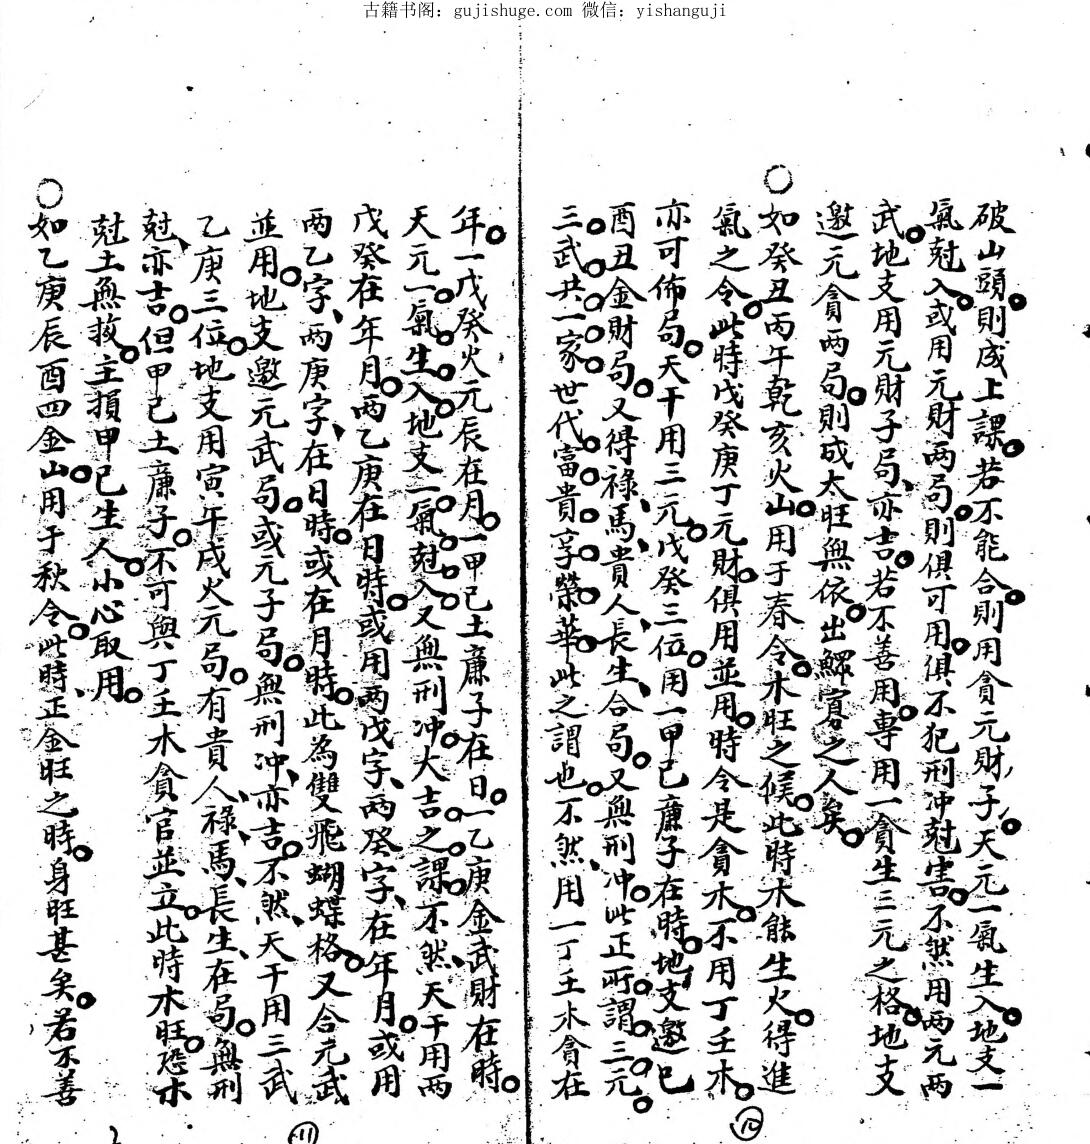 古籍书阁：gujishuge.com 微信：yishanguji
破山頭。則成上課。若不能合。則用貪元財、子、天元一氣生入。地支一
氣尅入。或用元財两局。則俱可用。俱不犯刑冲尅害。不然用两元两
武。地支用元財子局、亦吉。若不善用。專用一貪生三元之格。地支
邀元貪两局。則成太旺無依。出鰥寡之人矣。
○如癸丑丙午乾亥火山。用于春令。木旺之候。此時木能生火。得進
氣之令。此時戊癸庚丁元財。俱用並用。時令是貪木。不用丁壬木。
亦可佈局。天干用三元。戊癸三位。用一甲己廉子在時。地支邀巳
酉丑金財局。又得禄、馬、貴人、長生、合局。又無刑冲。此正所謂。三元。
三。武。共。一。家。世代富。貴。享。榮。華。此之謂也。不然、用一丁壬木貪在
年。一戊癸火元辰在月。一甲己土廉子在日。一乙庚金武財在時。
天元一氣。生入。地支一氣。尅入。又無刑冲。大吉。之課。不然、天干用两
戊癸在年月。两乙庚在日時。或用两戊字、两癸字、在年月。或用
两乙字、两庚字、在日時。或在月時。此為雙飛蝴蝶格。又合元武
並用。地支邀元武局。或元子局。無刑冲、亦吉。不然、天干用三武
乙庚三位。地支用寅午戌火元局。有貴人、禄、馬、長生、在局。無刑
尅、亦吉。但甲己土廉子。不可與丁壬木貪官並立。此時木旺。恐木
尅土無救。主損甲己生人。小心取用。
○如乙庚辰酉四金山。用于秋令。此時、正金旺之時。身旺甚矣。若不善